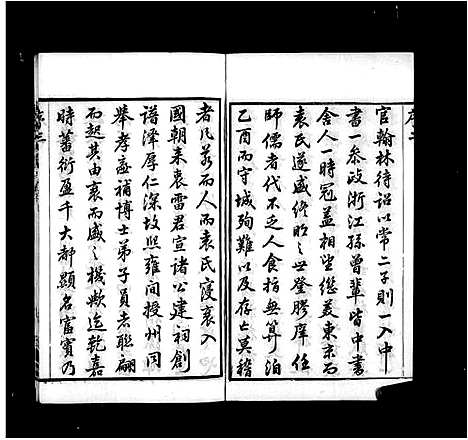 序二
官翰林待詔以常二子則一入中
書一參政浙江孫曾輩皆中書
舍人一時冠蓋相望繼美東京而
袁氏遂盛修明之世登膠庠任
師儒者代不乏人食指無算泊
乙酉而守城殉難以及存亡莫稽
者凡若而人而袁氏寖衰入
國朝來袁雷君宣諸公建祠創
譜澤厚仁深故熙雍間授州同
舉孝廉補博士弟子員者聯翩
而起其由衰而盛之機歟迄乾嘉
時蕃衍盈千大都顯名富實乃